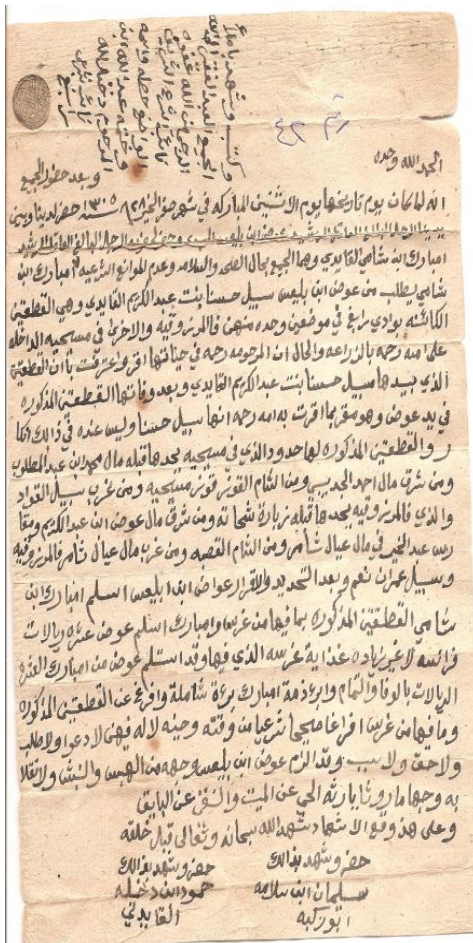 وكتب وشهد بامر
الجميع العبد الفقير الى الله
الرحمن الله
نائب الشرع الشريف
الواضع خطه واسمه
عبدالله ابن
المرحوم دخيل الله
نائب الشرع
رقم ٤٢
الحمد لله وحده
وبعد حضور الجميع
انه لما كان يوم تاريخها يوم الاثنين المباركه في شهر صفر الخير ٢٨ سنه ١٣٠٥ حضر لدينا وبين
يدينا الرجل البالغ العاقل الرشيد عوض ابن بليعس السيد وحضر لحضوره الرجل البالغ العاقل الرشيد
امبارك ابن شامي القايدي وهما الجميع بحال الصحه والسلامه وعدم الموانع الشرعيه امبارك ابن
شامي يطلب من عوض ابن بليعس سبيل حسنا بنت عبد الكريم القايدي وهي القطعتين
الكائنه بوادي رابغ في موضعين وحده منهن فالمرزوقيه والاخرى في مسيحيه الداخله
على امه رجه بالزراعه والحال ان المرحومه رجه في حياتها اقرت واعترفت بان القطعتين
الذي بيدها سبيل حسنا بنت عبد الكريم القايدي وبعد وفاتها القطعتين المذكوره
في يد عوض وهو مقر بما اقرت به امه رجه انها سبيل حسنا وليس عنده في ذالك انكا
ر والقطعتين المذكوره لها حدود الذي في مسيحيه يحدها قبله مال محمد ابن عبد المطلوب
ومن شرق مال احمد الجديبي ومن الشام القوز قوز مسيحيه ومن غرب سبيل القواد
والذي فالمرزوقيه يحدها قبله زبارة شحاته ومن شرق مال عوض ابن عبد الكريم ومقا
عبد الخير في مال عيال شامر ومن الشام القصبه ومن غرب مال عيال شامر فالمرزوقيه
وسبيل عمران نعم وبعد التحديد والاقرار عواض ابن ابليعس اسلم امبارك ابن
شامي القطعتين المذكوره بما فيها من غرس وامبارك اسلم عوض عشره ريالات
فرانسه لا غير زياده غذاية غرسه الذي فيها وقد استلم عوض من امبارك العشره
الريالات بالوفا والتمام وابر ذمة امبارك برءة شاملة وافرغ عن القطعتين المذكوره
وما فيها من غرس افراغا صحيحا شرعيا من وقته وحينه لا له فيهن لا دعوا ولا طلب
ولا حق ولا سبب وقد الزم عوض ابن بليعس وجهه من الهبس والنبش ولانقلا
به وجها مار وثا بارثه الحي عن الميت والشفق عن البايق
وعلى هذ وقع الاشهاد شهد الله سبحانه وتعالى قبل خلقه
حضر وشهد بذالك
سليمان ابن سلامه
ابو ركبه
حضر وشهد بذالك
حمود ابن دخيله
القايدي